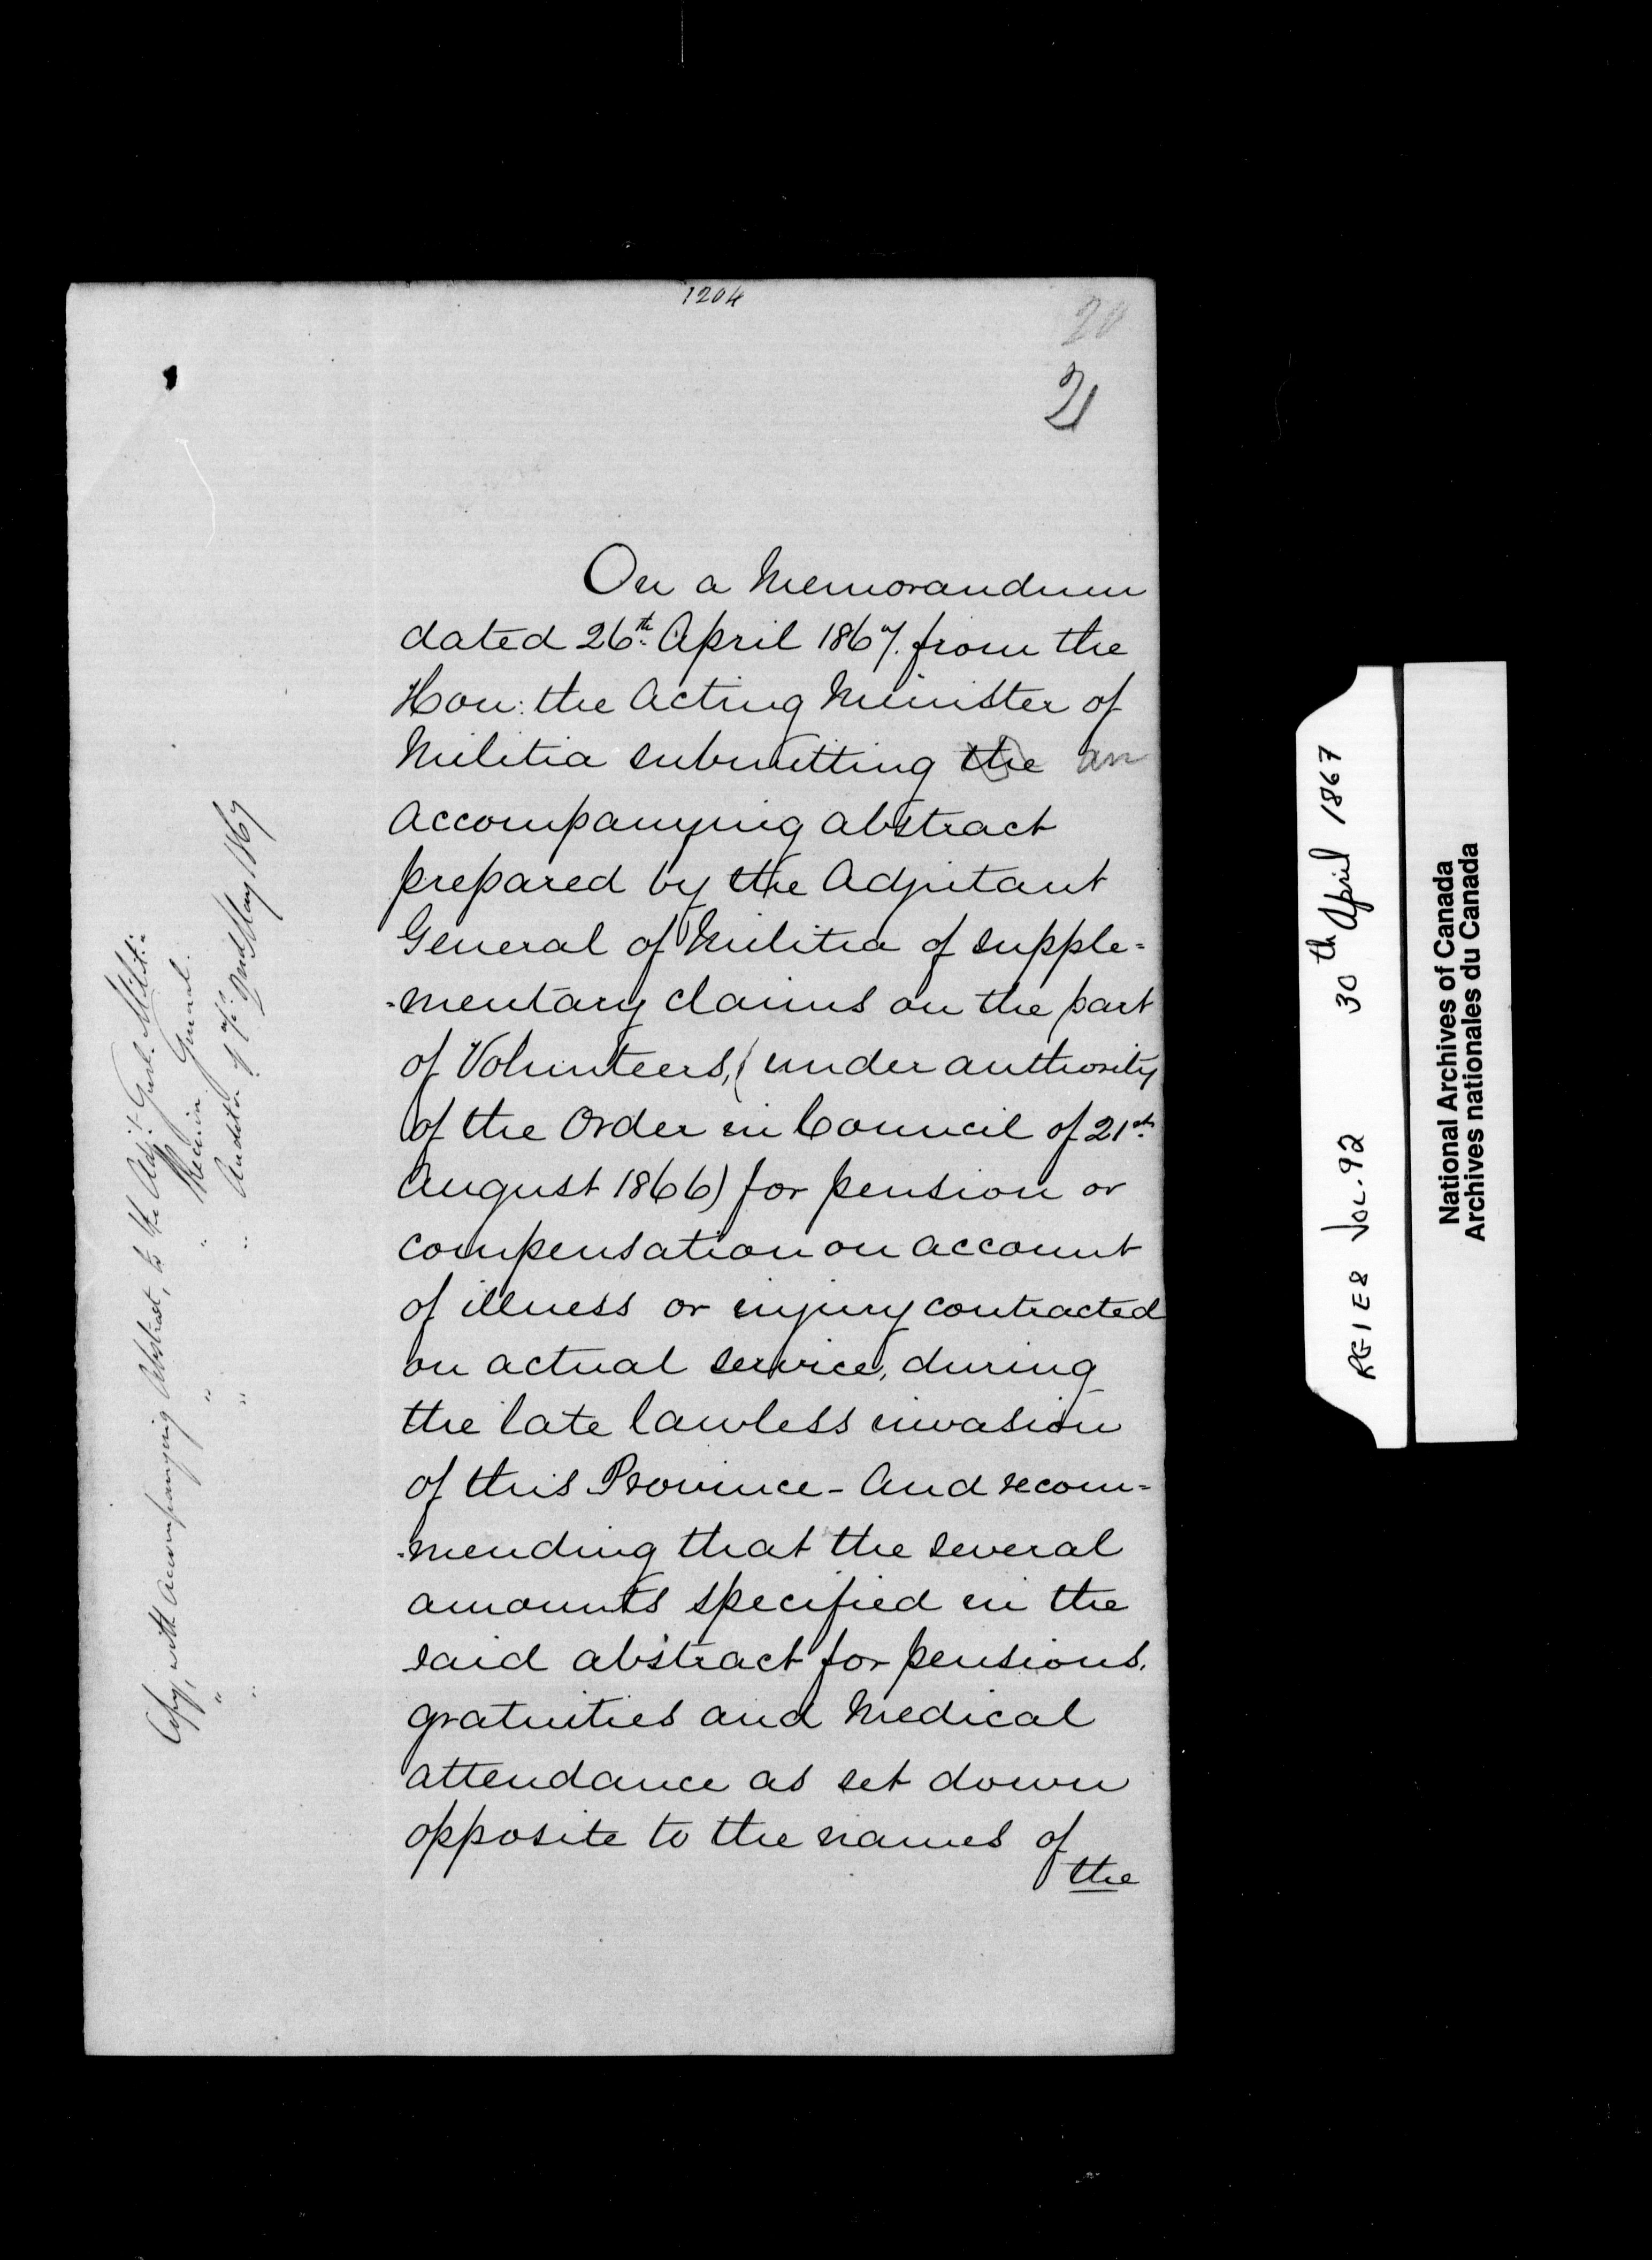 1204
20
21
On a Memorandum
dated 26th. April 1867. from the
Hon: the Acting Minister of
Militia submitting the an
accompanying abstract
prepared by the Adjutant
General of Militia of supple=
-mentary claims on the part
of Volunteers, (under authority
of the Order in Council of 21st
August 1866) for pension or
compensation on account
of illness or injury contracted
on actual service, during
the late lawless invasion
of this Province - And recom=
-mending that the several
amounts specified in the
said abstract for pensions,
gratuities and Medical
attendance as set down
opposite to the names of
the
Copy, with accompanying Abstract, to the Adjt. Genl. Militia
" " " Receiver General.
" " " Auditor of a/cs 2nd May 1867
RG1 E8 VOL. 92 30th April 1867
National Archives of Canada
Archives nationales du Canada